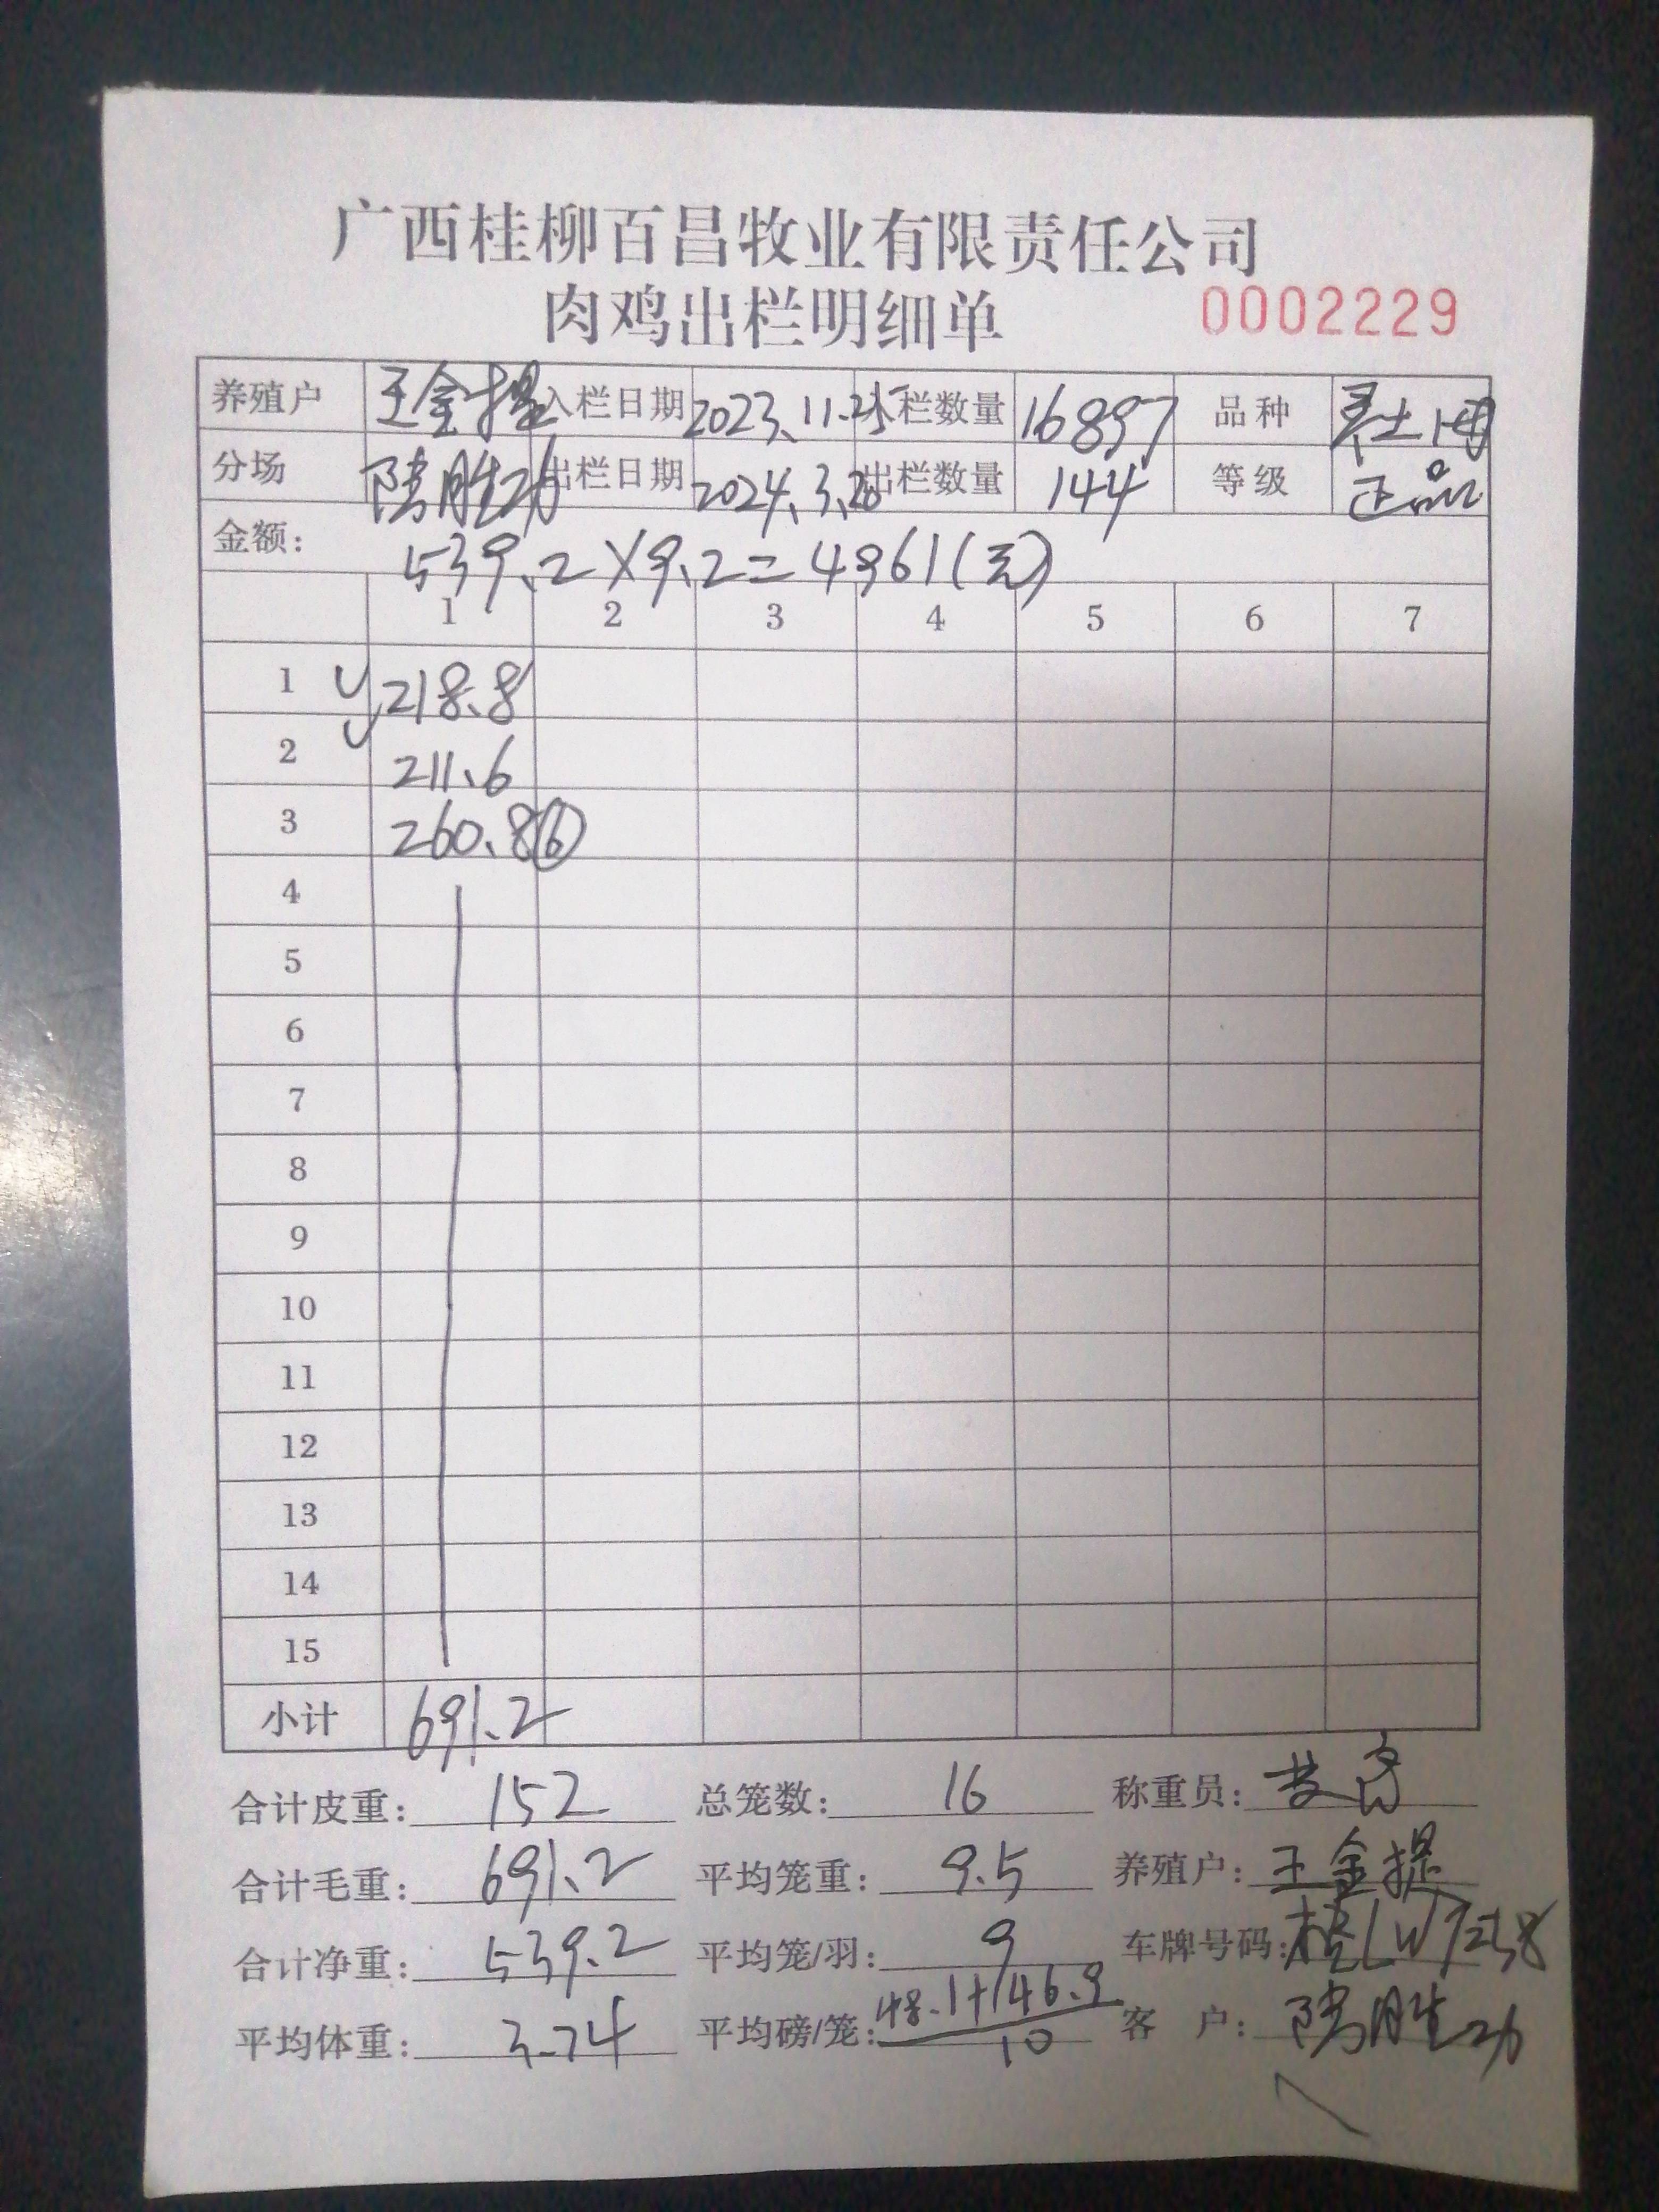 广西桂柳百昌牧业有限责任公司
肉鸡出栏明细单 0002229
养殖户 王金提 入栏日期 2023.11.25 入栏数量 16897 品种 土
分场 陆胜功 出栏日期 2024.3.26 出栏数量 144 等级 正品
金额: 539.2×9.2=4961(元)
1 2 3 4 5 6 7
1 218.8
2 211.6
3 260.8 ⑥
4
5
6
7
8
9
10
11
12
13
14
15
小计 691.2
合计皮重: 152 总笼数: 16 称重员:
合计毛重: 691.2 平均笼重: 9.5 养殖户: 王金提
合计净重: 539.2 平均笼/羽: 9 车牌号码:
平均体重: 3.74 平均磅/笼: 48.1+146.9 客 户: 陆胜功
10